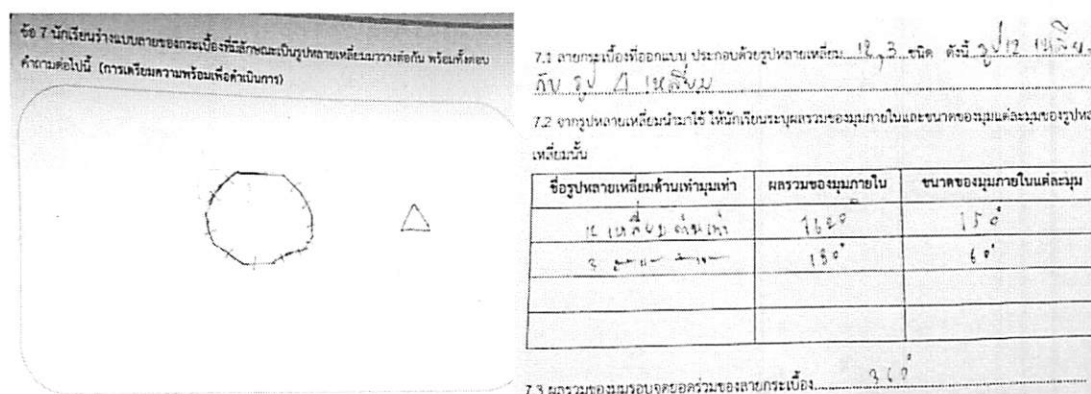 ข้อ 7 นักเรียนร่างแบบลายของกระเบื้องที่มีลักษณะเป็นรูปหลายเหลี่ยมมาวางต่อกัน พร้อมทั้งตอบ
คำถามต่อไปนี้ (การเตรียมความพร้อมเพื่อดำเนินการ)
7.1 ลายกระเบื้องที่ออกแบบ ประกอบด้วยรูปหลายเหลี่ยม 12, 3 ชนิด ดังนี้ รูป 12 เหลี่ยม
กับ รูป △ เหลี่ยม
7.2 จากรูปหลายเหลี่ยมนำมาใช้ ให้นักเรียนระบุผลรวมของมุมภายในและขนาดของมุมแต่ละมุมของรูปหล
เหลี่ยมนั้น
ชื่อรูปหลายเหลี่ยมด้านเท่ามุมเท่า ผลรวมของมุมภายใน ขนาดของมุมภายในแต่ละมุม
12 เหลี่ยม ด้านเท่า 150°
3 180° 60°
7.3 ผลรวมของมุมรอบจุดยอดร่วมของลายกระเบื้อง 360°